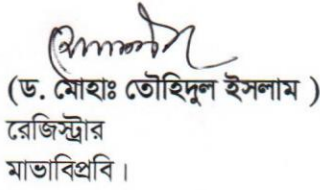 (ড. মোহাঃ তৌহিদুল ইসলাম )
রেজিস্ট্রার
মাভাবিপ্রবি।